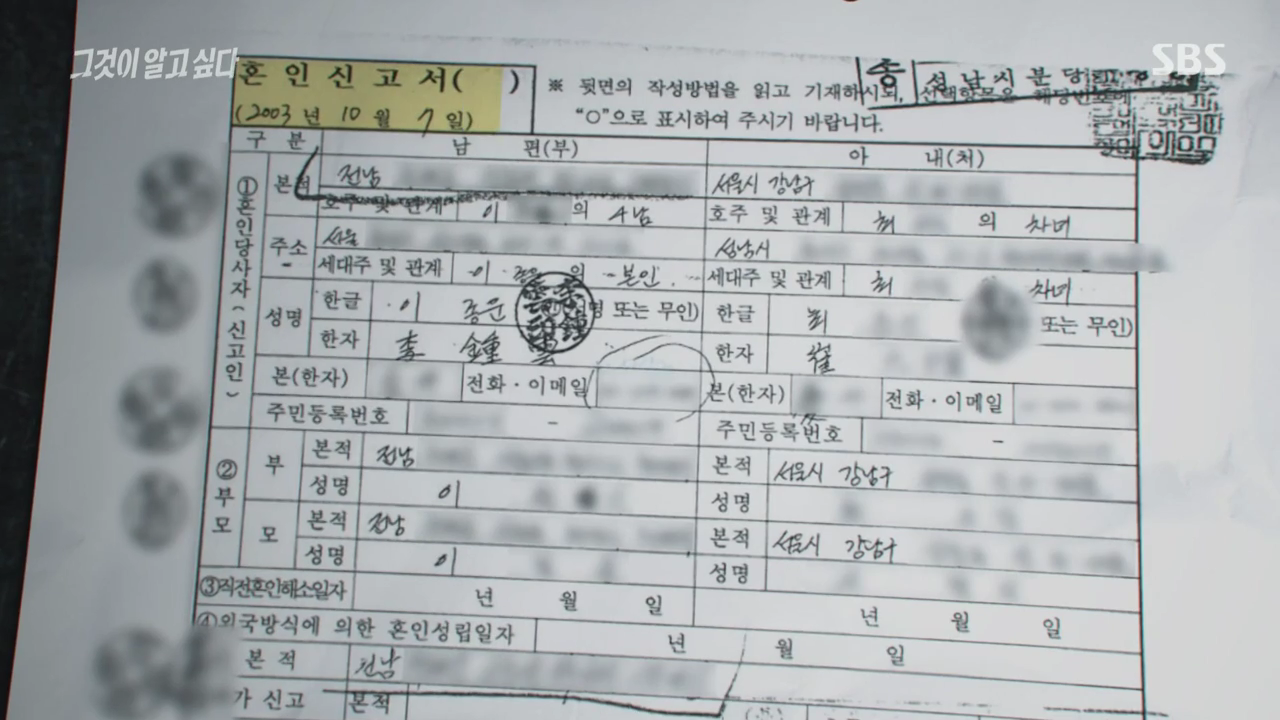 그것이 알고 싶다
SBS
혼 인 신 고 서( )
(2003 년 10 월 7 일)
※ 뒷면의 작성방법을 읽고 기재하시되, 선택항목은 해당번호에
"○"으로 표시하여 주시기 바랍니다.
성남시분당
구 분 남 편(부) 아 내(처)
①혼인당사자(신고인)
본적 전남 서울시 강남구
호주 및 관계 이 의 4남 호주 및 관계 최 의 차녀
주소 서울 성남시
세대주 및 관계 이 종운 의 본인 세대주 및 관계 최 차녀
성명 한글 이 종운 또는 무인) 한글 최 또는 무인)
한자 李 鍾雲 한자 崔
본(한자) 전화·이메일 본(한자) 전화·이메일
주민등록번호 - 주민등록번호 -
②부모
부 본적 전남 본적 서울시 강남구
성명 이 성명
모 본적 전남 본적 서울시 강남구
성명 이 성명
③직전혼인해소일자 년 월 일 년 월 일
④외국방식에 의한 혼인성립일자 년 월 일
본 적 전남
가 신고 본적